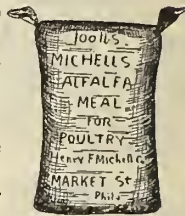 100 lbs.
MICHELLS
ALFALFA
MEAL
FOR
POULTRY
Henry F Michell Co.
MARKET St
Phil.